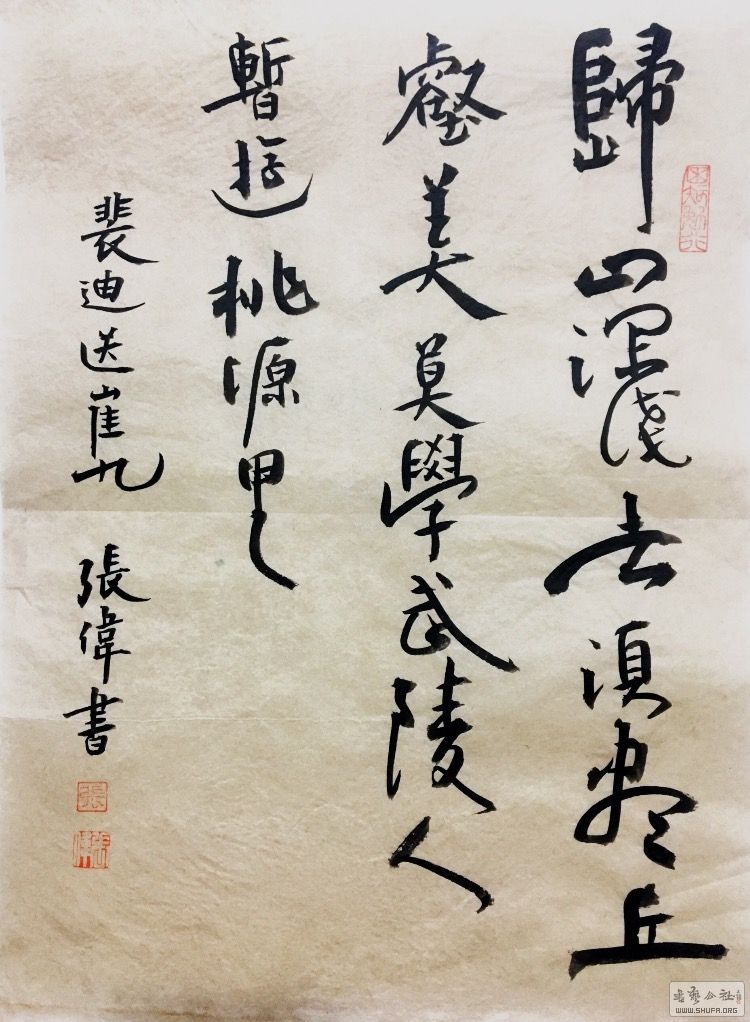 歸山深淺去須盡丘
壑美莫學武陵人
暫遊桃源里
裴迪送崔九 張偉書
張
張偉
書藝公社
WWW.SHUFA.ORG